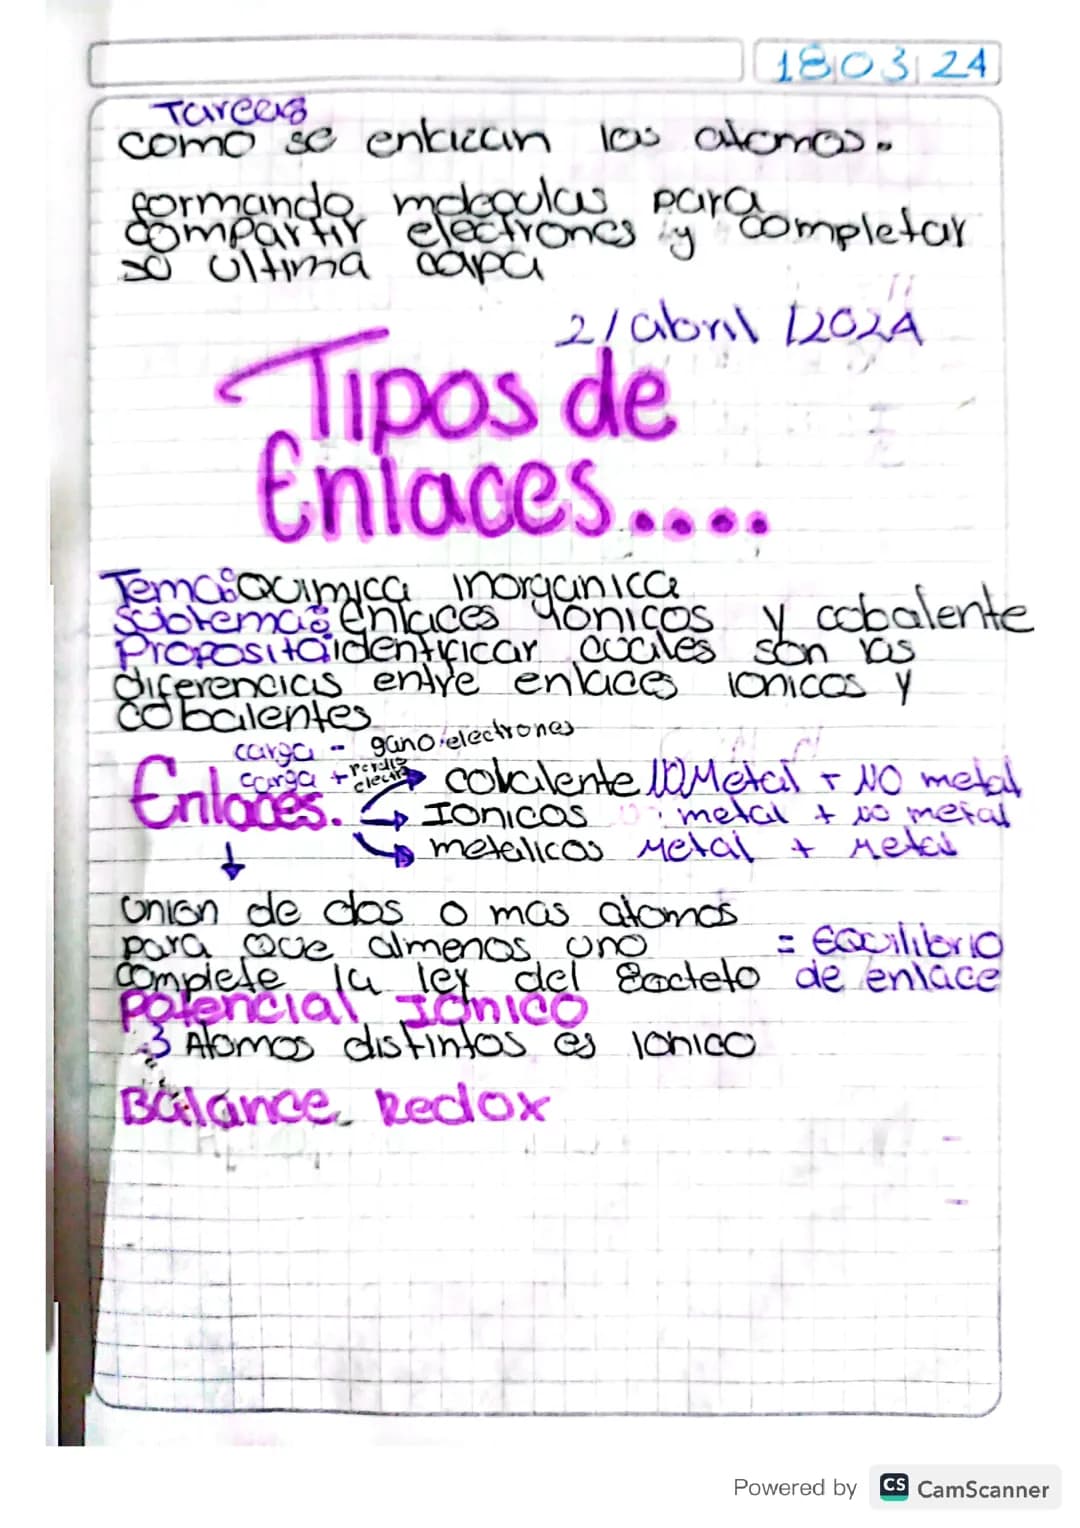 18 03 24
Tarea8
como se enlazan los atomos.
formando moleculas para
compartir electrones y completar
su ultima capa
2/abril/2024
Tipos de
Enlaces....
Tema: Quimica inorganica
Subtema: Enlaces yonicos y cobalente
Proposito: identificar cuales son las
diferencias entre enlaces ionicos y
cobalentes
carga - gano electrones
carga + perdio electr
Enlaces. covalente NO Metal + NO metal
Ionicos metal + no metal
metalicos Metal + Metal
union de dos o mas atomos
para que almenos uno = Equilibrio
complete la ley del 8octeto de enlace
Potencial Iónico
3 Atomos distintos es ionico
Balance Redox
Powered by CS CamScanner